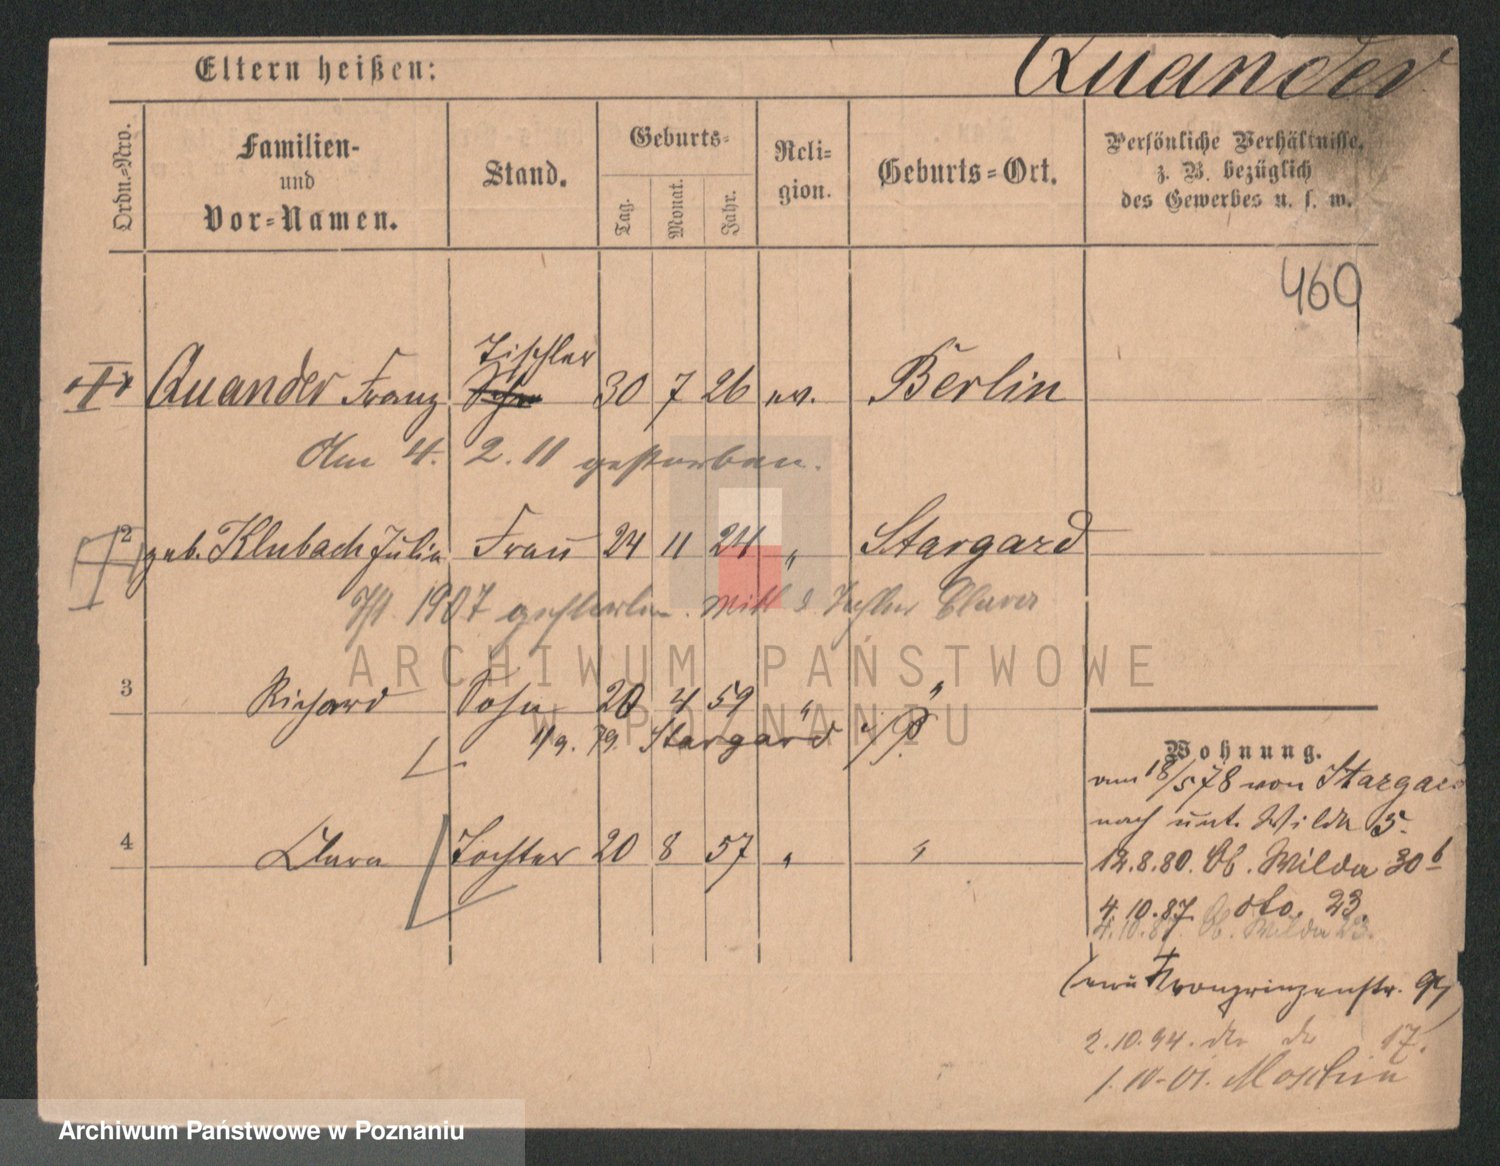 Eltern heißen:
Quander
Ordn.-Nro.
Familien-
und
Vor-Namen.
Stand.
Geburts-
Tag.
Monat.
Jahr.
Reli-
gion.
Geburts-Ort.
Persönliche Verhältnisse,
z. B. bezüglich
des Gewerbes u. s. w.
460
Tischler
Quander Franz 30 7 26 ev. Berlin
Am 4. 2. 11 gestorben.
2 geb. Klubach Julia Frau 24 11 24 " Stargard
1907 gestorben.
3 Richard Sohn 20 4 59 " "
1/9. 79. Stargard i/P.
4 Clara Tochter 20 8 57 " "
Wohnung.
am 18/5 78 von Stargard
nach unt. Wilda 5.
12.8.80. Ob. Wilda 30b
4.10.87. dto. 23.
4.10.87. Ob. Wilda 23.
Kronprinzenstr. 94)
2.10.94. 17.
Moschin
ARCHIWUM PAŃSTWOWE
W POZNANIU
Archiwum Państwowe w Poznaniu